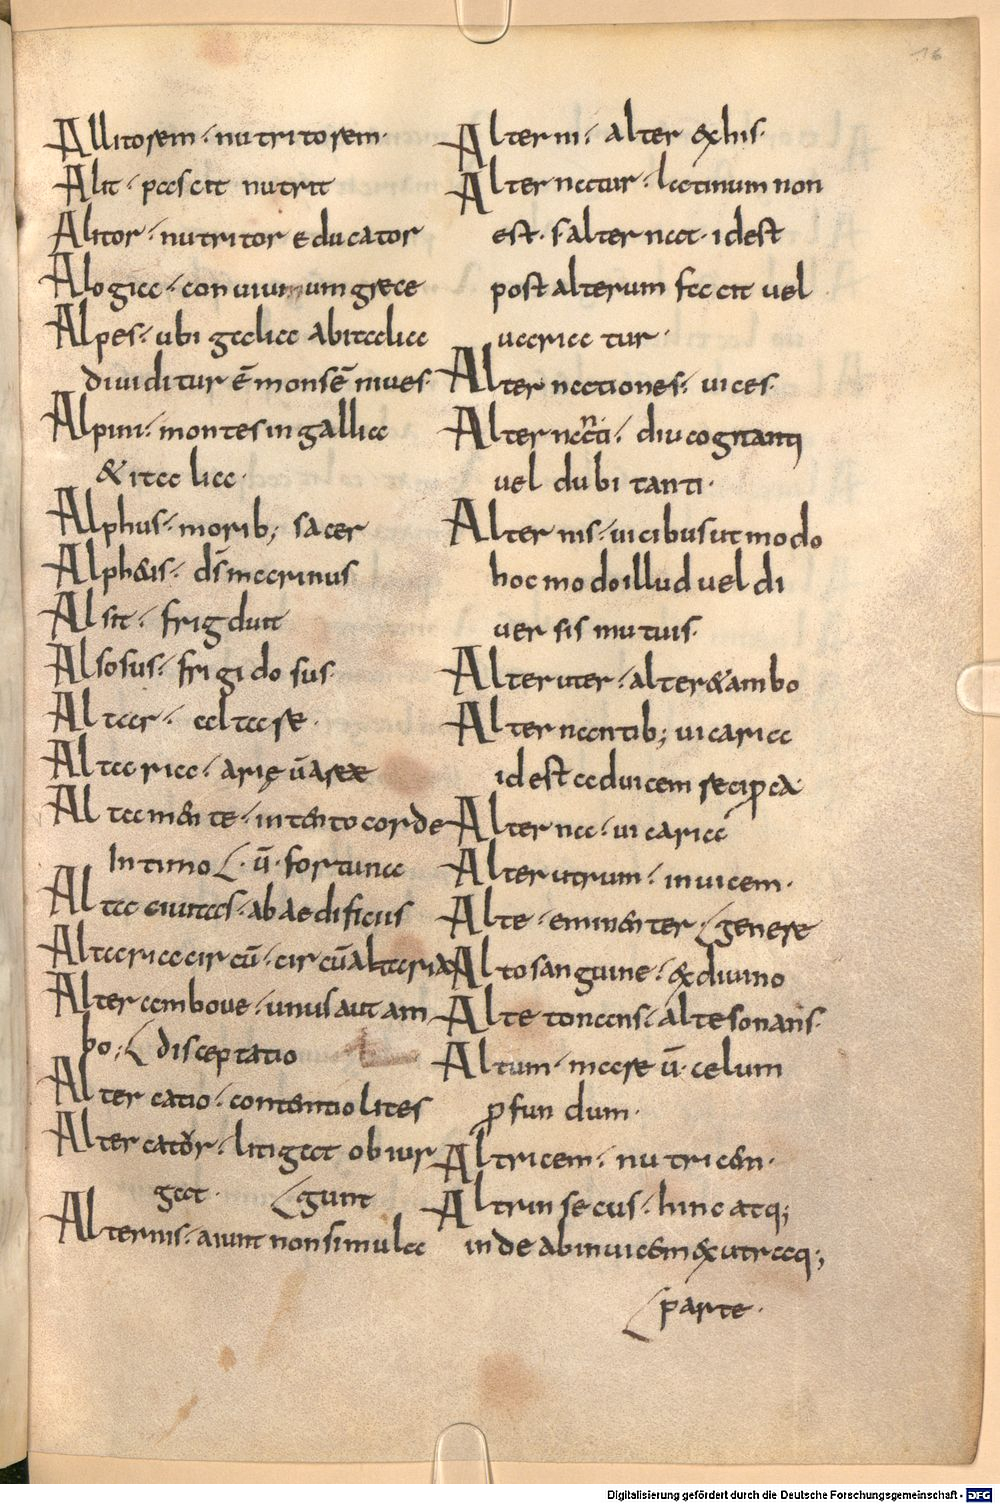 16
Allitorem· nutritorem·
Alit· pascit nutrit
Alitor· nutritor educator
Alogia· conuiuium grece
Alpes· ubi gallia abitalia
diuiditur ē monsē niues·
Alpini· montes in gallia
& italia·
Alphus· morib; sacer
Alph&is· ds̄ marinus
Alsit· friguit
Alsosus· frigidosus·
Altar· altare·
Altaria· arię ū aree
Alta mente· intento corde
Intimo ū· fortuna
Alta ciuitas· ab aedificiis
Altaria circū· circū altaria
Alter amboue· unus aut am
bo; disceptatio
Altercatio· contentio lites
Altercator· litigat obiur
gat· gunt
Alternis· aiunt non simul a
Alterni· alter & his·
Alternatur· latinum non
est· s· alternat· id est
post alterum facit uel
uariatur·
Alternationes· uices·
Alternanti· diu cognanti
uel dubitanti·
Alternis· uicibus ut modo
hoc modo illud uel di
uersis mutuis·
Alteruter· alter & ambo
Alternantib; uicaria
id est ad uicem recip ca
Alterna· uicaria
Alterutrum· inuicem·
Alte· eminenter genere
Alto sanguine· & diuino
Alte tonans· alte sonans·
Altum· mare ū· celum
p fundum·
Altricem· nutricem·
Altrinsecus· hinc atq;
inde abinuicem & utraq;
parte·
Digitalisierung gefördert durch die Deutsche Forschungsgemeinschaft - DFG